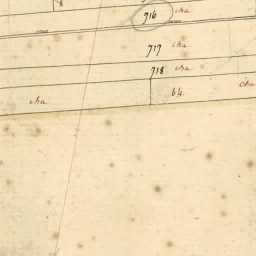 8
716 cha
717 cha
718 cha
cha
64.
cha